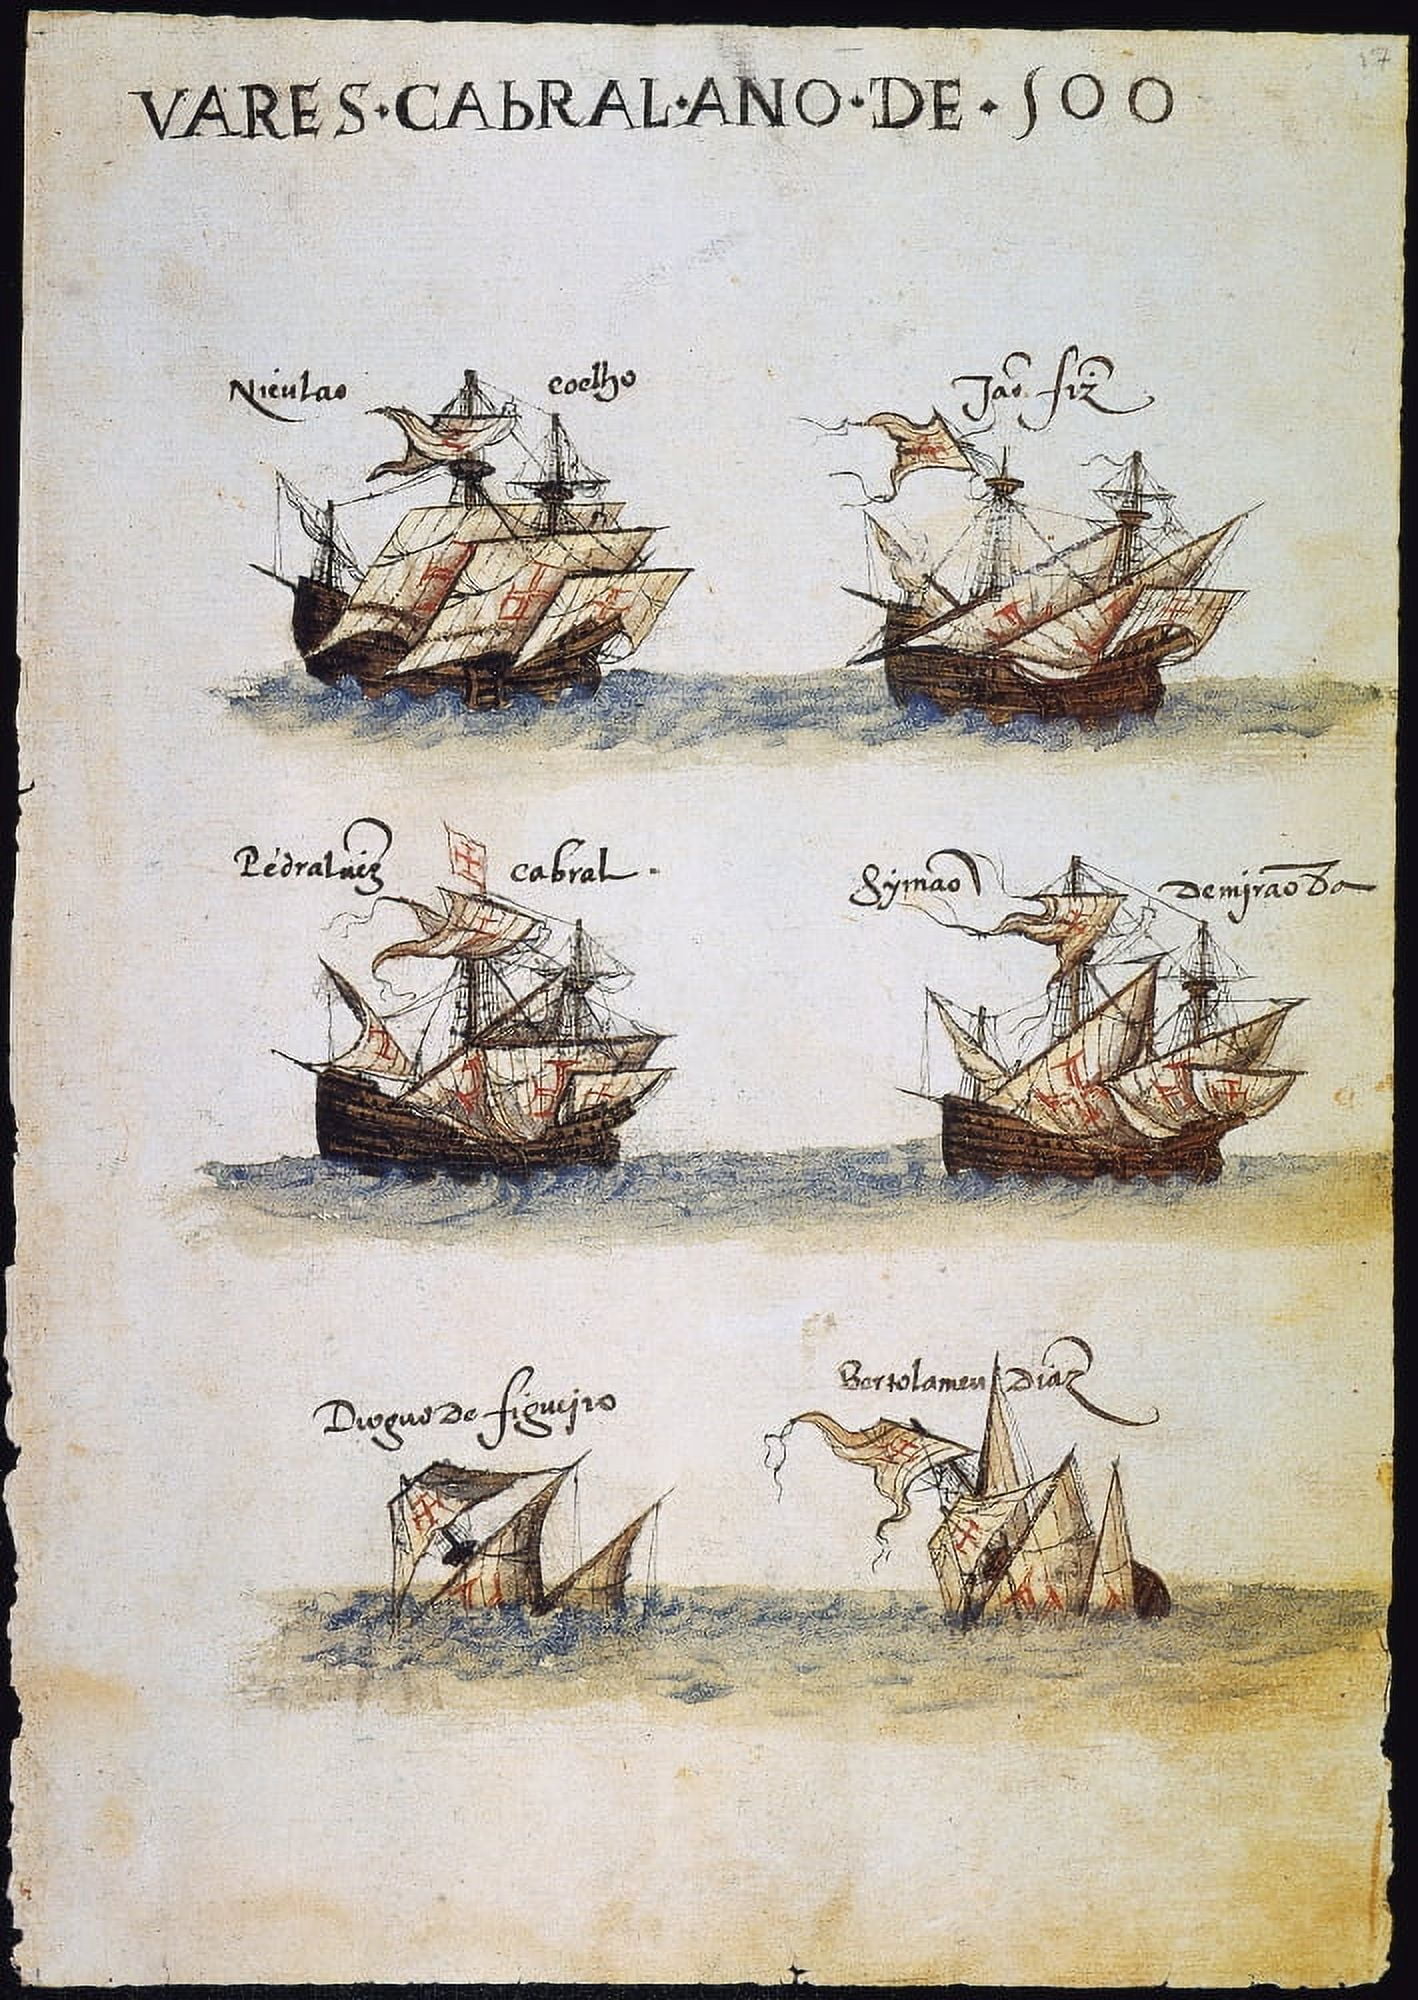 VARES·CAbRAL·ANO·DE·500
Niculao coelho
Jaõ fiz̃
Pedraluẽz cabral.
Symaõ de mjraõda
Dioguo de figueiro
Bertolameu diaz